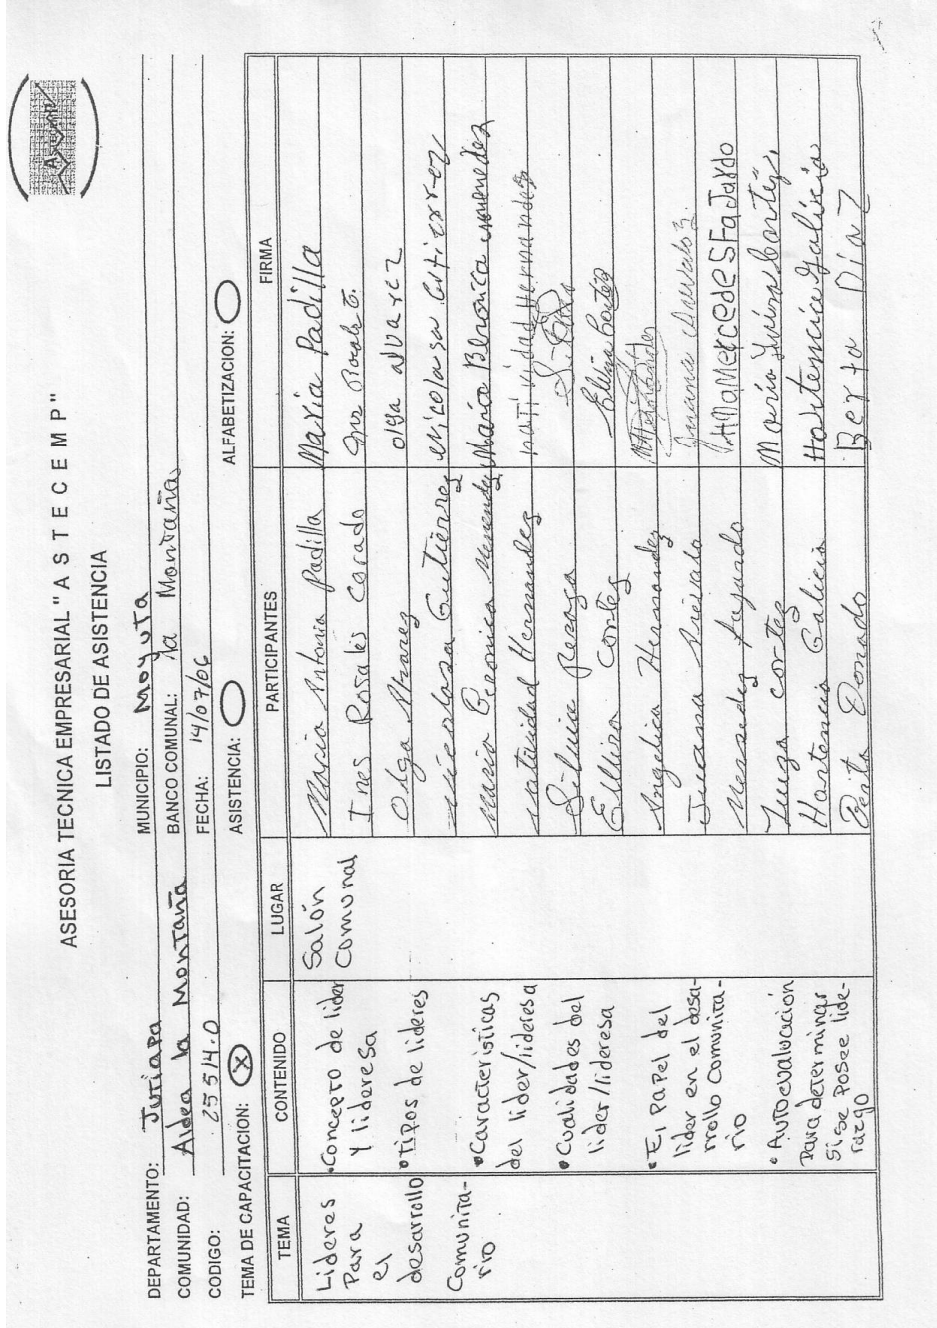 ASTECEMP
ASESORIA TECNICA EMPRESARIAL " A S T E C E M P "
LISTADO DE ASISTENCIA
DEPARTAMENTO: Jutiapa MUNICIPIO: Moyuta
COMUNIDAD: Aldea la Montaña BANCO COMUNAL: la Montaña
CODIGO: 25514-0 FECHA: 14/07/06
TEMA DE CAPACITACION: X ASISTENCIA: ALFABETIZACION:
TEMA CONTENIDO LUGAR PARTICIPANTES FIRMA
Lideres
Para
el
desarrollo
Comunita-
rio
•Concepto de lider
Y lideresa
•tipos de lideres
•Caracteristicas
del lider/lideresa
•Cualidades del
lider/lideresa
•El Papel del
lider en el desa-
rrollo Comunita-
rio
•Autoevaluación
Para determinar
Si se Posee lide-
razgo
Salón
Comunal
Maria Antonia padilla Maria Padilla
Ines Rosales Corado
Olga Alvarez olga alvarez
nicolasa Gutierrez nicolasa Gutierrez
maria Beronica menendez Maria Beronica menendez
natividad Hernandez natividad Hernandez
Silvia
Elvira Cortez Elvira Cortez
Angelica Hernandez
Juana Arevalo Juana Arevalo
mersedes fajardo ANAMercedeSFaJardo
Luiza cortez Maria Luiza Cortez
Hortencia Galicia Hortencia Galicia
Berta Donado Berta Díaz